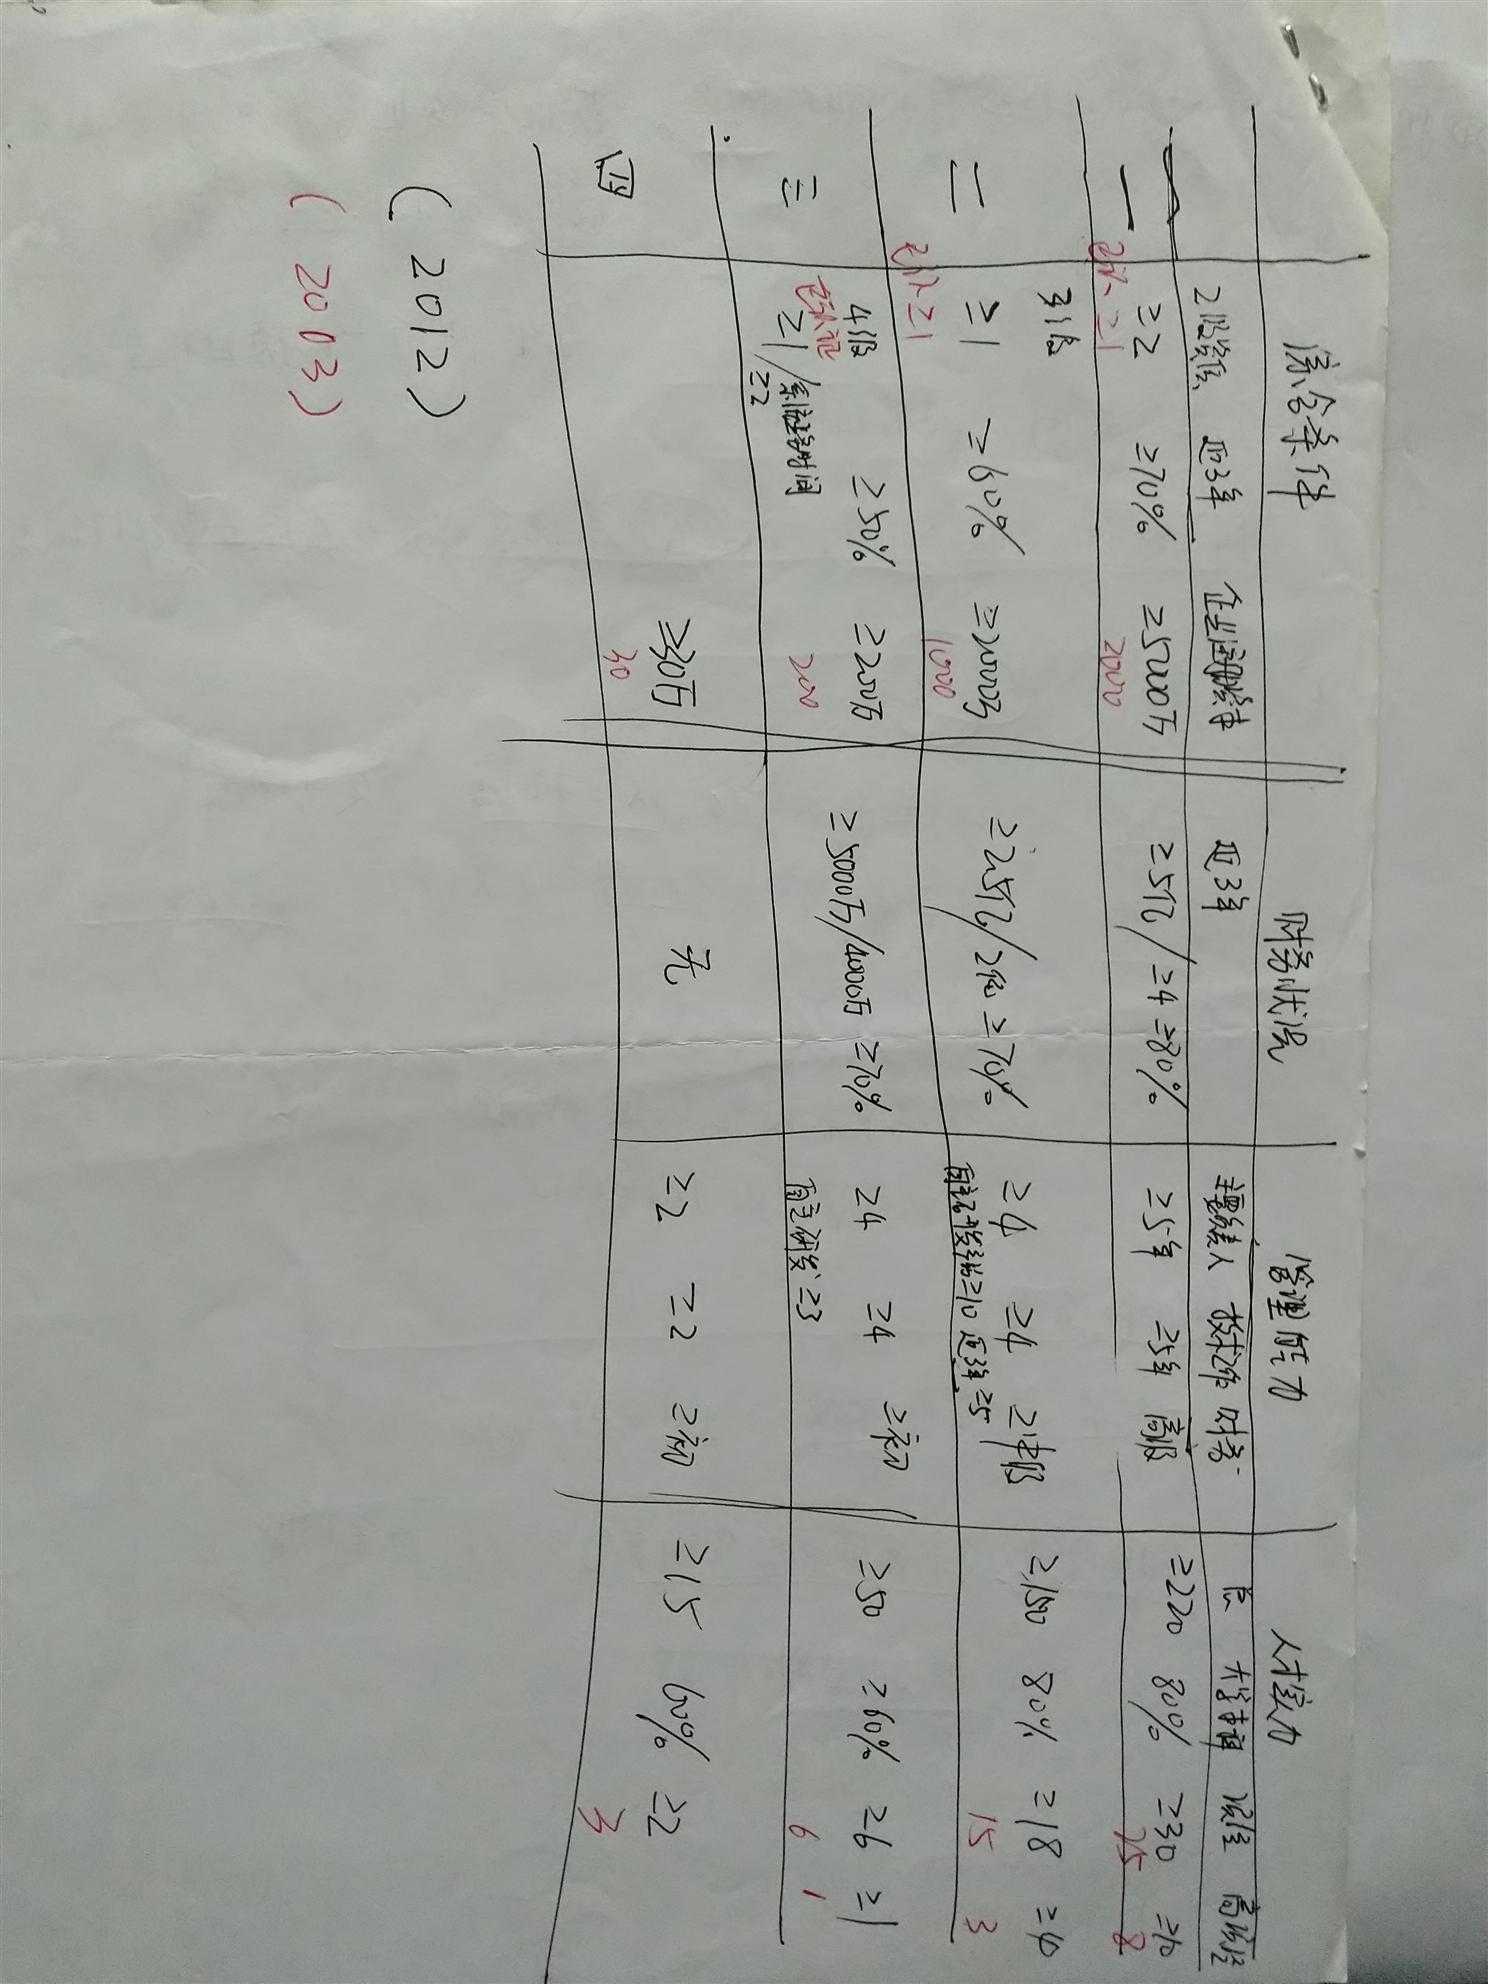 综合条件 财务状况 管理能力 人才实力
2级资质 近3年 企业注册资本 近3年 主要负责人 技术工作 财务 大学本科 项经 高项经
一 ≥2 ≥70% ≥5000万 ≥5亿/≥4 ≥80% ≥5年 ≥5年 高级 ≥220 80% ≥30
≥1 2000 25 8
3级
二 ≥1 ≥60% ≥2000万 ≥2.5亿/2亿 ≥70% ≥4 ≥4 ≥中级 ≥150 80% ≥18 ≥4
≥1 1000 自主研发 ≥10 近3年≥5 15 3
4级
三 ≥1/ 时间 ≥50% ≥200万 ≥5000万/4000万 ≥70% ≥4 ≥4 ≥初 ≥50 ≥60% ≥6 ≥1
≥2 200 自主研发≥3 6 1
四 ≥30万 无 ≥2 ≥2 ≥初 ≥15 60% ≥2
30 3
(2012)
(2003)